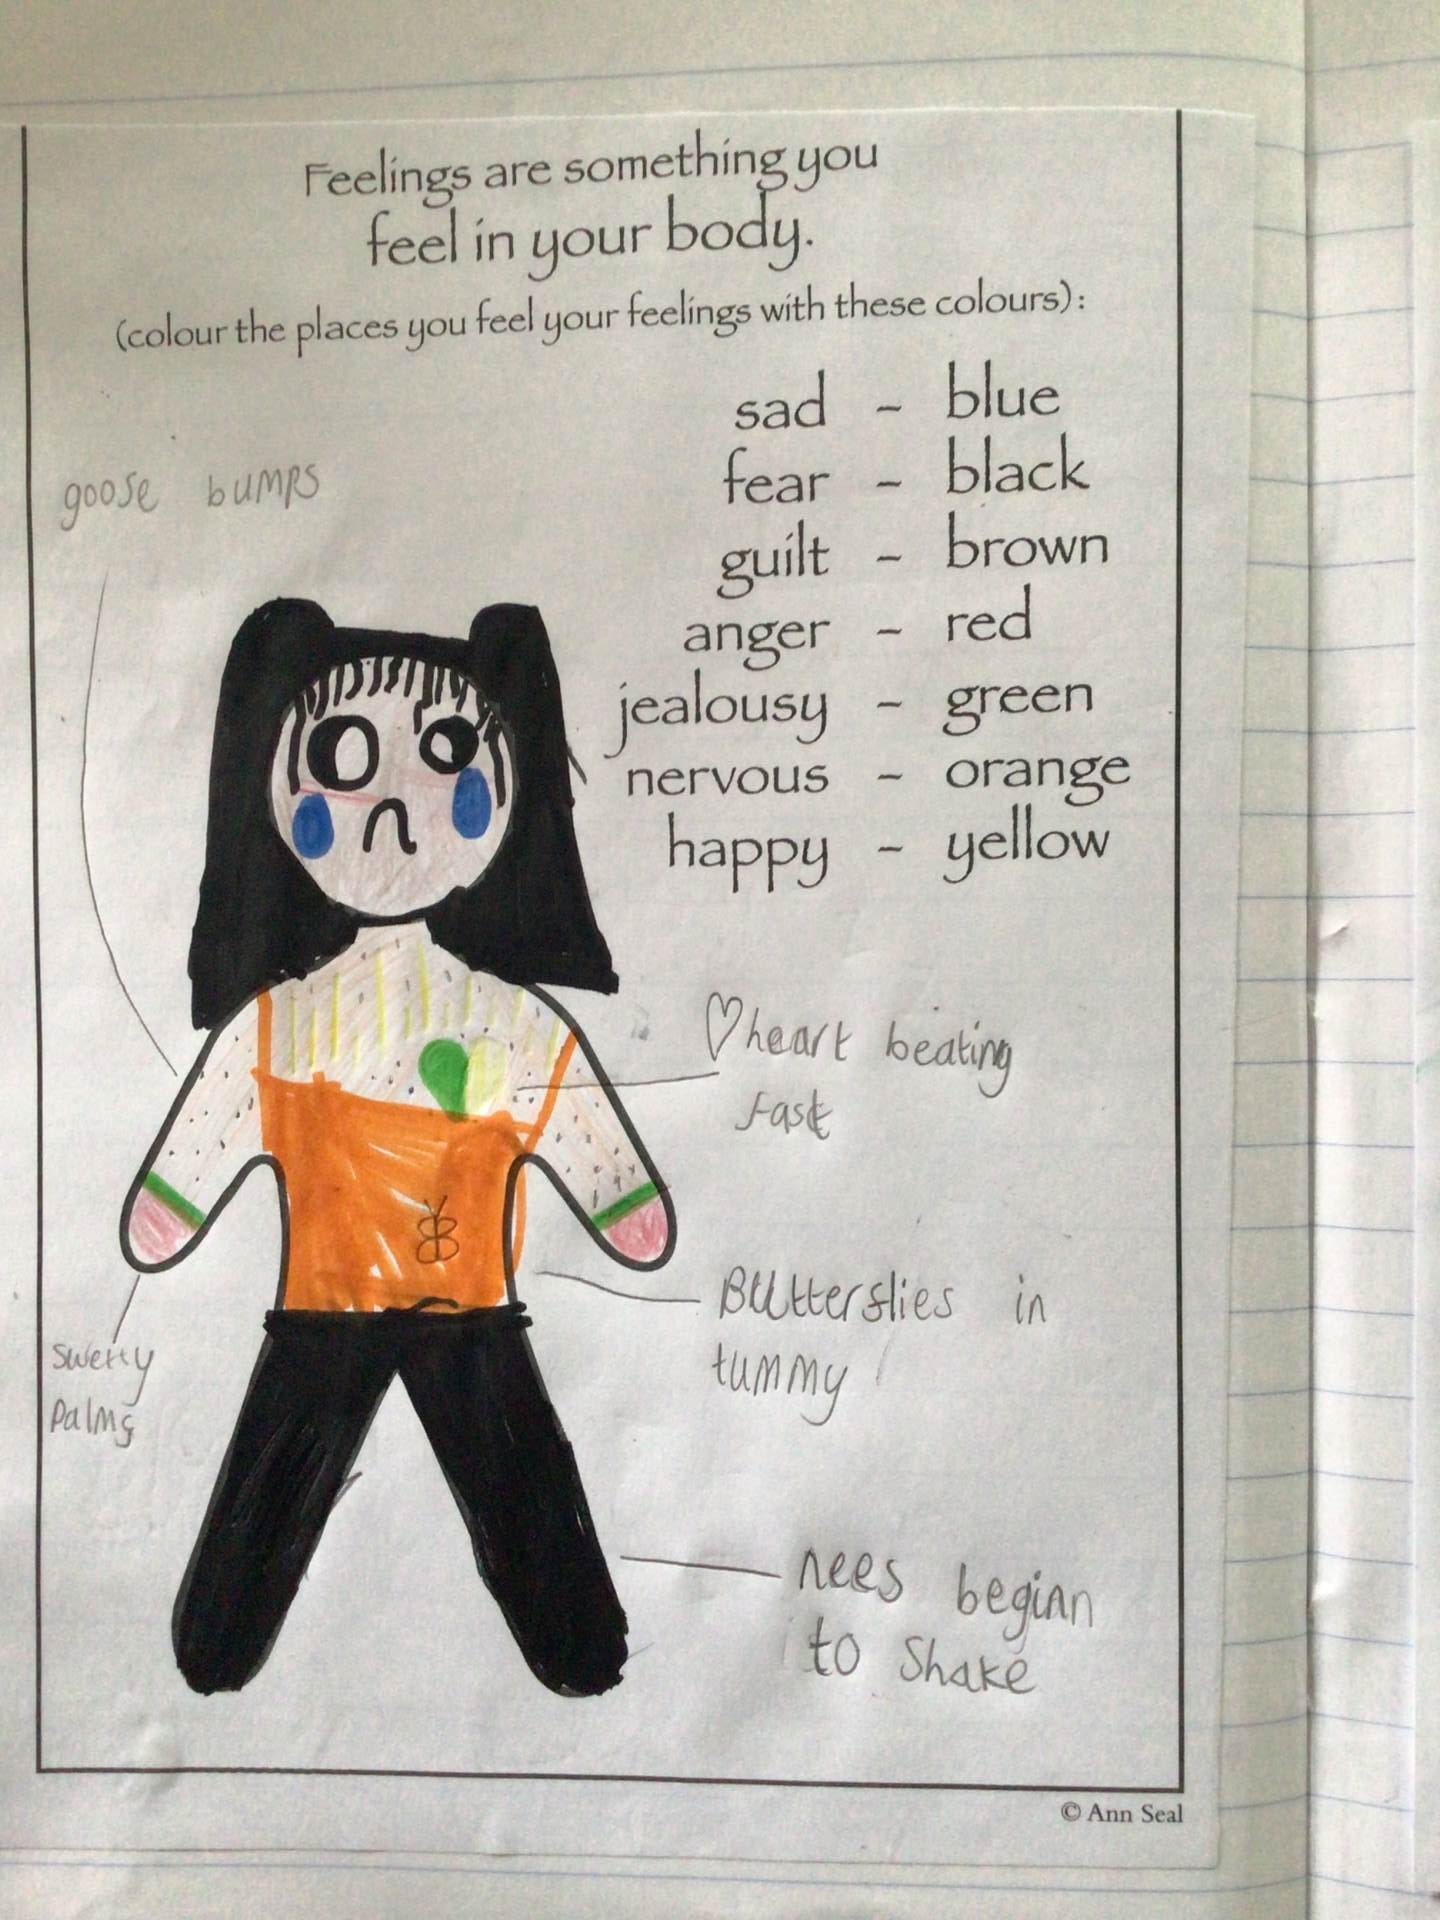 Feelings are something you
feel in your body.
(colour the places you feel your feelings with these colours):
sad - blue
fear - black
guilt - brown
anger - red
jealousy - green
nervous - orange
happy - yellow
goose bumps
heart beating
Fast
Butterflies in
tummy
swetty
palms
nees beginn
to shake
© Ann Seal